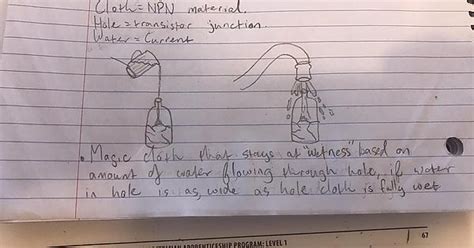 Cloth = NPN material.
Hole = transistor junction.
Water = Current
• Magic cloth that stays at "wetness" based on
amount of water flowing through hole, if water
in hole is as, wide as hole cloth is fully wet
APPRENTICESHIP PROGRAM: LEVEL 1
67